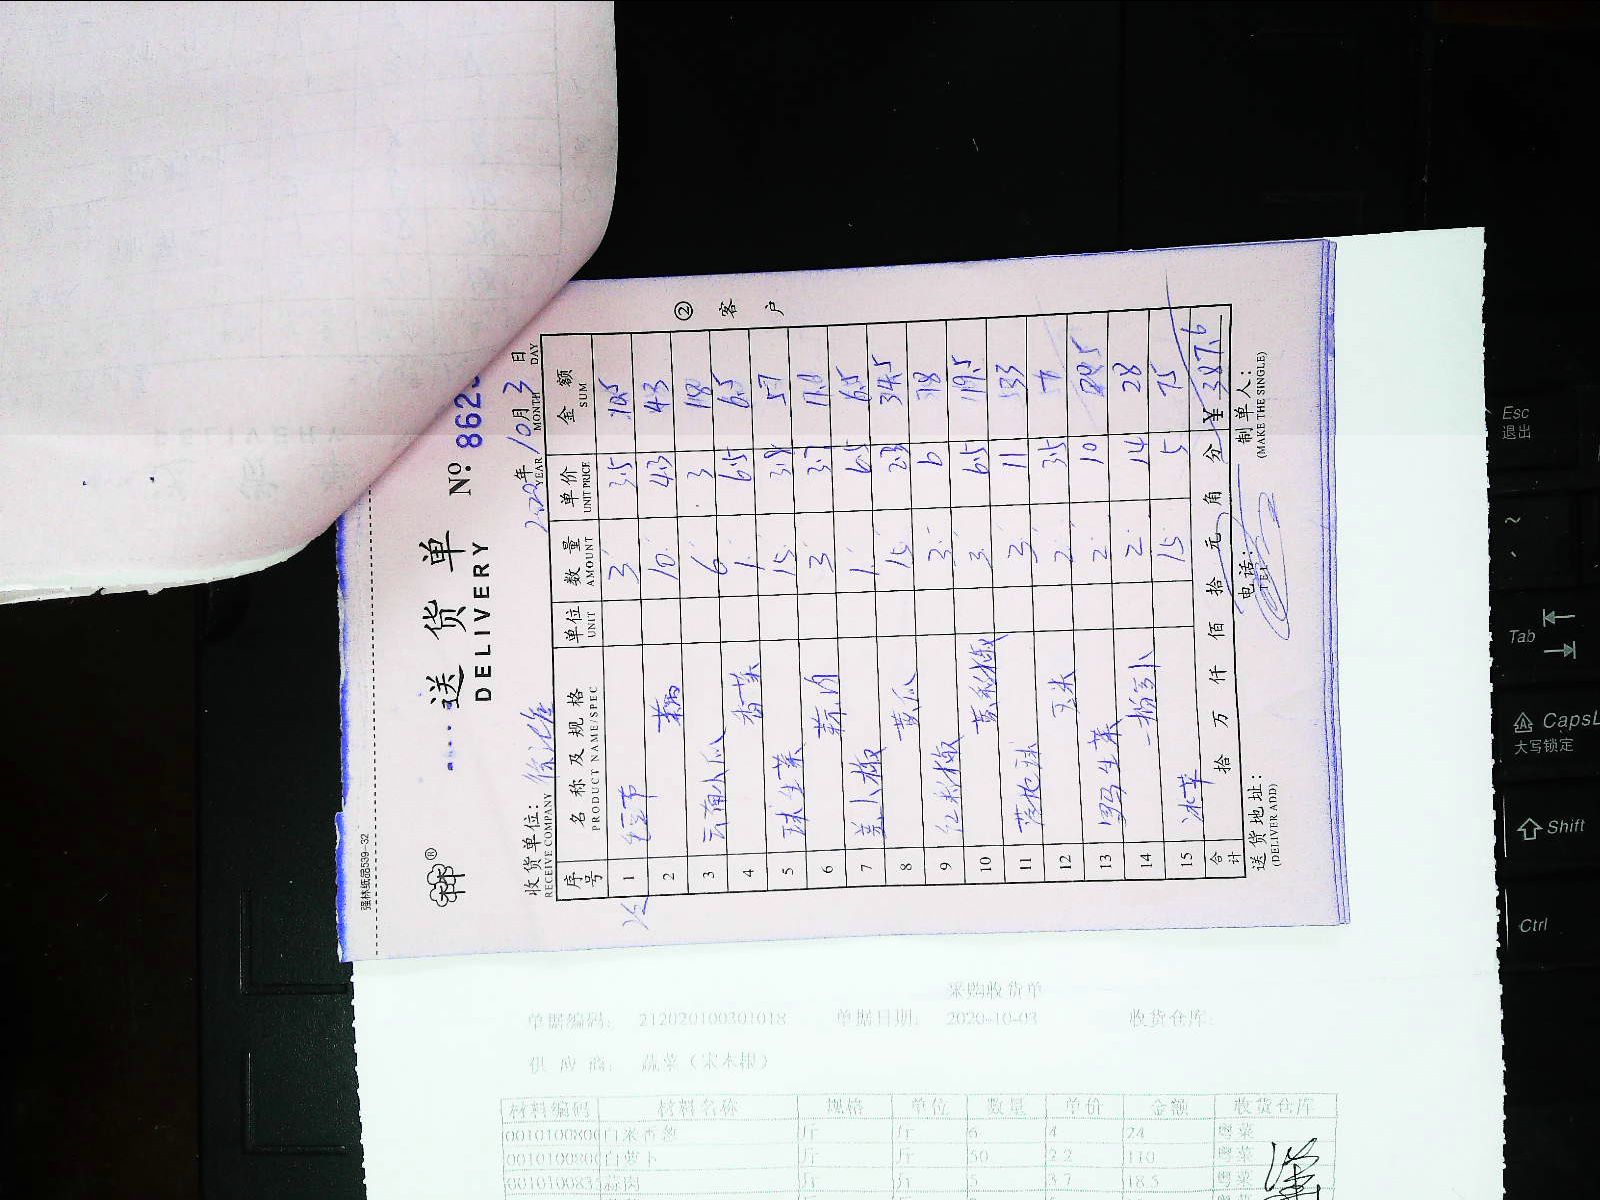 强林纸品539-32
送货单
DELIVERY
No 862
收货单位:
RECEIVE COMPANY
2020年10月3日
YEAR MONTH DAY
序号 名称及规格 单位 数量 单价 金额
PRODUCT NAME/SPEC UNIT AMOUNT UNIT PRICE SUM
1 3 3.5 10.5
2 10 4.3 43
3 云南小瓜 6 3 18
4 香菜 1 6.5 6.5
5 球生菜 15 3.8 57
6 蒜肉 3 3.7 11.1
7 1 6.5 6.5
8 黄瓜 15 2.3 34.5
9 红彩椒 3 6 18
10 黄彩椒 3 6.5 19.5
11 3 11 33
12 2 3.5 7
13 罗马生菜 2 10
14 2 14 28
15 冰草 15 5 75
合计 拾 万 仟 佰 拾 元 角 分 ¥387.6
送货地址: 电话: 制单人:
(DELIVER ADD) TEL (MAKE THE SINGLE)
② 客户
采购收货单
单据编码: 212020100301018 单据日期: 2020-10-03 收货仓库:
供应商: 蔬菜(宋本根)
材料编码 材料名称 规格 单位 数量 单价 金额 收货仓库
斤 斤 6 4 24 粤菜
白萝卜 斤 斤 50 2.2 110 粤菜
蒜肉 斤 斤 5 3.7 18.5 粤菜
Esc
退出
~
Tab
CapsL
大写锁定
Shift
Ctrl